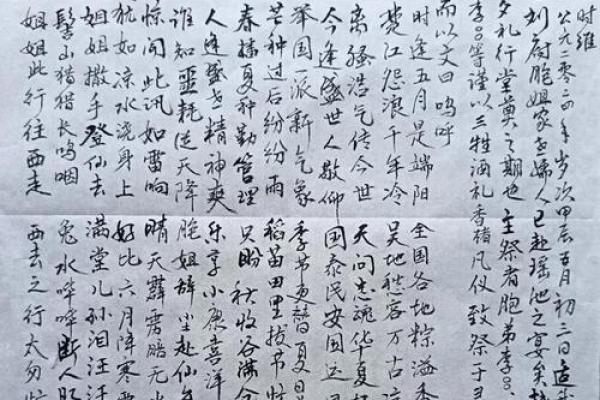 时维
公元二零二四年岁次甲辰五月初三日适
刘府胞姐家子孺人已赴瑶池之宴矣
夕礼行堂奠之期也主祭者胞弟李〇〇、
李〇〇等谨以三牲酒礼香褚凡仪致祭于
而以文曰呜呼
时逢五月是端阳 全国各地粽溢香
楚江怨浪千年冷 吴地愁客万古
离骚浩气传今世 天问忠魂华夏
今逢盛世人敬仰 国泰民安国运
举国一派新气象 季节更替夏日
芒种过后纷纷雨 稻苗田里拔节忙
春播夏种勤管理 只盼秋收谷满仓
人逢盛世精神爽 乐享小康喜洋
谁知噩耗从天降 胞姐辞尘赴仙
惊闻此讯如雷响 晴天霹雳暗无
犹如凉水浇身上 好比六月降寒
姐姐撒手登仙去 满堂儿孙泪汪汪
髻山猎猎长呜咽 兔水哗哗断人
姐姐此行往西走 西去之行太匆忙